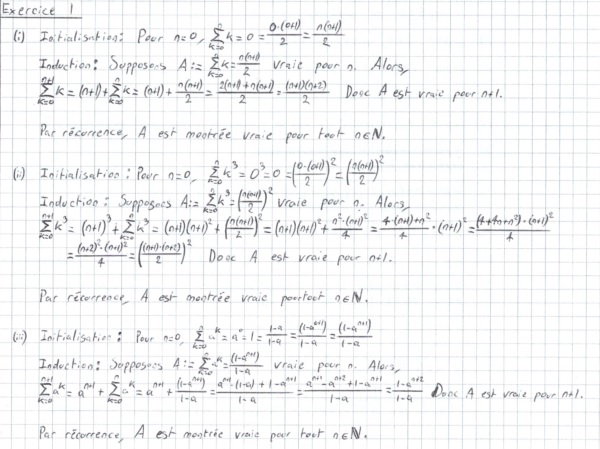 Exercice 1
(i) Initialisation: Pour n=0, ∑_{k=0}^{n} k = 0 = 0·(0+1)/2 = n(n+1)/2
Induction: Supposons A := ∑_{k=0}^{n} k = n(n+1)/2 vraie pour n. Alors,
∑_{k=0}^{n+1} k = (n+1) + ∑_{k=0}^{n} k = (n+1) + n(n+1)/2 = (2(n+1)+n(n+1))/2 = (n+1)(n+2)/2 Donc A est vraie pour n+1.
Par récurrence, A est montrée vraie pour tout n∈ℕ.
(ii) Initialisation: Pour n=0, ∑_{k=0}^{n} k³ = 0³ = 0 = (0·(0+1)/2)² = (n(n+1)/2)²
Induction: Supposons A := ∑_{k=0}^{n} k³ = (n(n+1)/2)² vraie pour n. Alors,
∑_{k=0}^{n+1} k³ = (n+1)³ + ∑_{k=0}^{n} k³ = (n+1)(n+1)² + (n(n+1)/2)² = (n+1)(n+1)² + n²·(n+1)²/4 = (4·(n+1)+n²)/4 · (n+1)² = (4+4n+n²)·(n+1)²/4
= (n+2)²·(n+1)²/4 = ((n+1)·(n+2)/2)² Donc A est vraie pour n+1.
Par récurrence, A est montrée vraie pour tout n∈ℕ.
(iii) Initialisation: Pour n=0, ∑_{k=0}^{n} a^k = a⁰ = 1 = (1-a)/(1-a) = (1-a^{0+1})/(1-a) = (1-a^{n+1})/(1-a)
Induction: Supposons A := ∑_{k=0}^{n} a^k = (1-a^{n+1})/(1-a) vraie pour n. Alors,
∑_{k=0}^{n+1} a^k = a^{n+1} + ∑_{k=0}^{n} a^k = a^{n+1} + (1-a^{n+1})/(1-a) = (a^{n+1}·(1-a) + 1-a^{n+1})/(1-a) = (a^{n+1}-a^{n+2}+1-a^{n+1})/(1-a) = (1-a^{n+2})/(1-a) Donc A est vraie pour n+1.
Par récurrence, A est montrée vraie pour tout n∈ℕ.